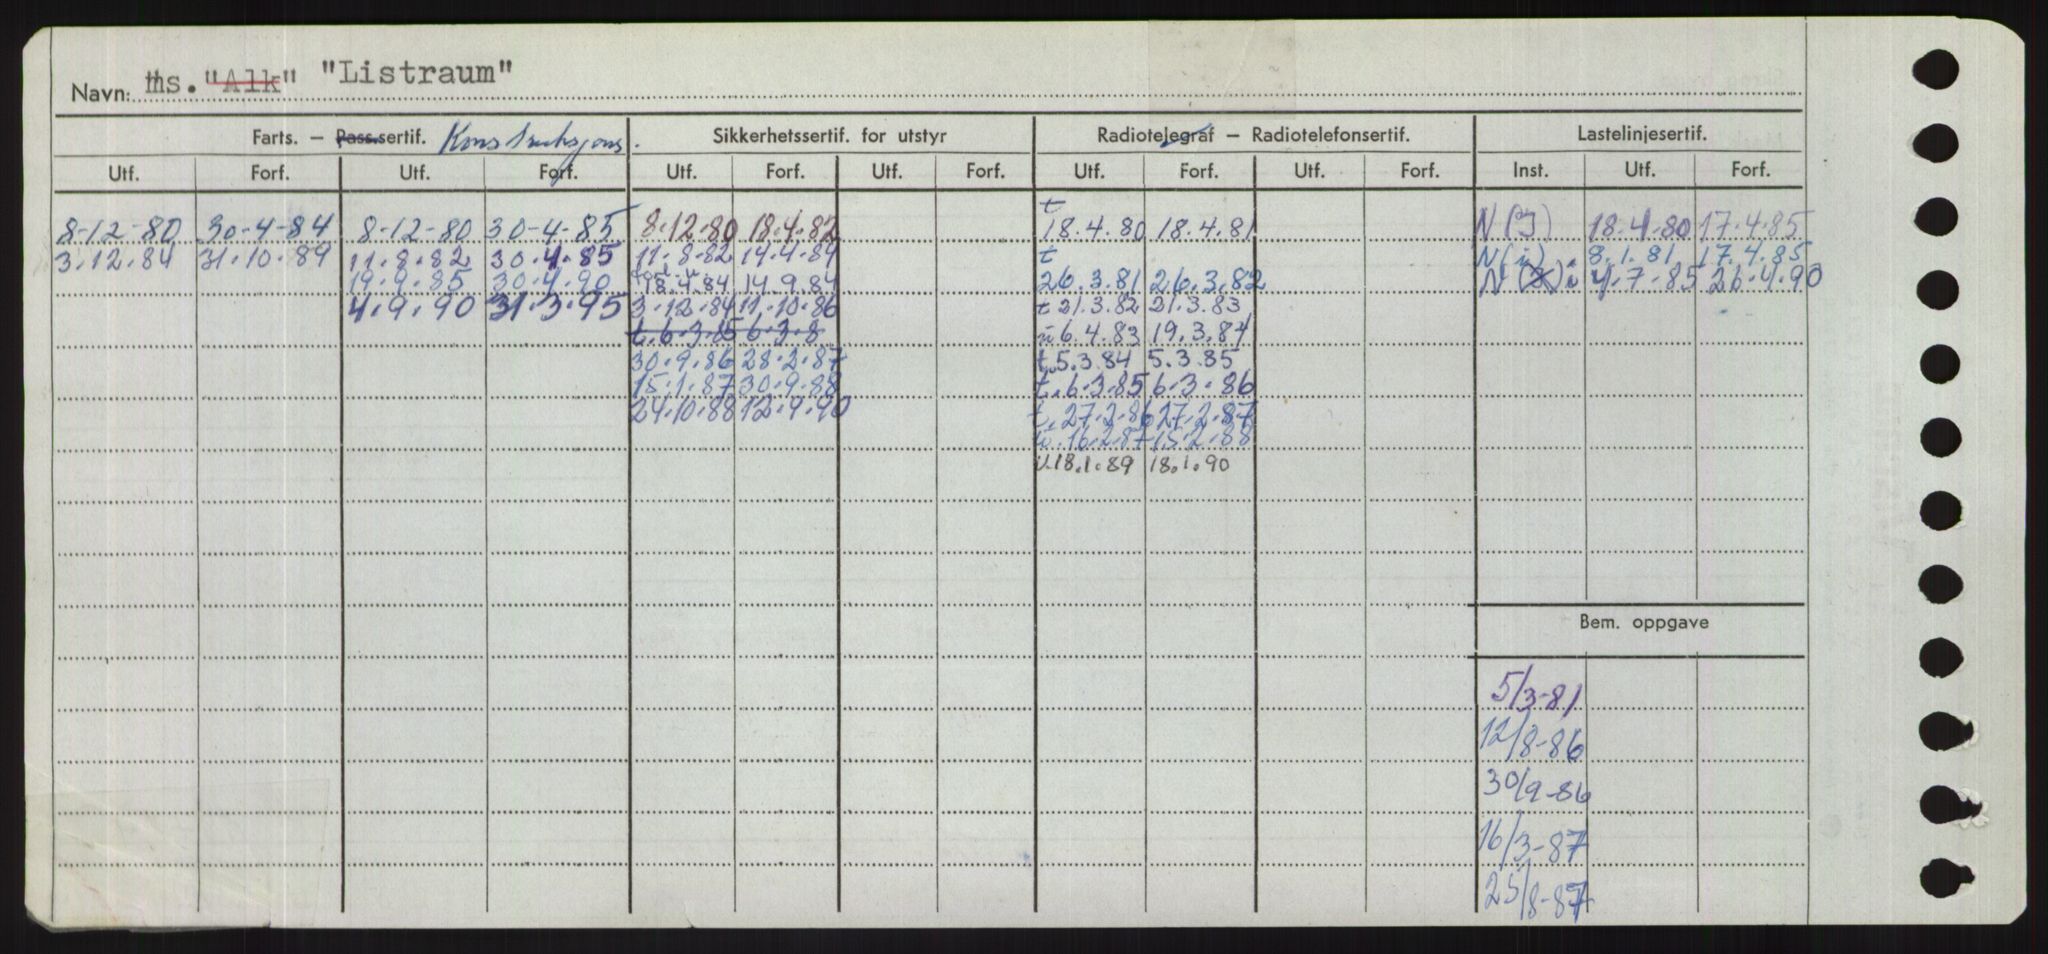 Navn: ms. "Alk" "Listraum"
Farts. — Pass.sertif. Konstruksjons. Sikkerhetssertif. for utstyr Radiotelegraf — Radiotelefonsertif. Lastelinjesertif.
Utf. Forf. Utf. Forf. Utf. Forf. Utf. Forf. Utf. Forf. Utf. Forf. Inst. Utf. Forf.
t
8-12-80 30-4-84 8-12-80 30-4-85 8.12.80 18.4.82 18.4.80 18.4.81 N(I) 18.4.80 17.4.85
3.12.84 31.10.89 11.8.82 30.4.85 11.8.82 14.4.84 t N(i) 8.1.81 17.4.85
19.9.85 30.4.90 18.4.84 14.9.84 26.3.81 26.3.82 N i 4.7.85 26.4.90
4.9.90 31.3.95 3.12.84 11.10.86 t 21.3.82 21.3.83
t.6.3.85 6.3.8 u 6.4.83 19.3.84
30.9.86 28.2.87 t.5.3.84 5.3.85
15.1.87 30.9.88 t.6.3.85 6.3.86
24.10.88 12.9.90 t.27.2.86 27.2.87
16.2.87 15.2.88
18.1.89 18.1.90
Bem. oppgave
5/3-81
12/8-86
30/9-86
16/3-87
25/8-87